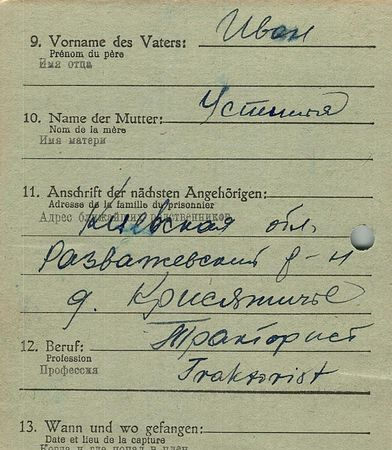 Иван
9. Vorname des Vaters:
Prénom du père
Имя отца
Устиния
10. Name der Mutter:
Nom de la mère
Имя матери
11. Anschrift der nächsten Angehörigen:
Adresse de la famille du prisonnier
Адрес ближайших родственников
Киевская обл.
Разважевский р-н
д.
12. Beruf: Тракторист
Profession
Профессия
Traktorist
13. Wann und wo gefangen:
Date et lieu de la capture
Когда и где попал в плен